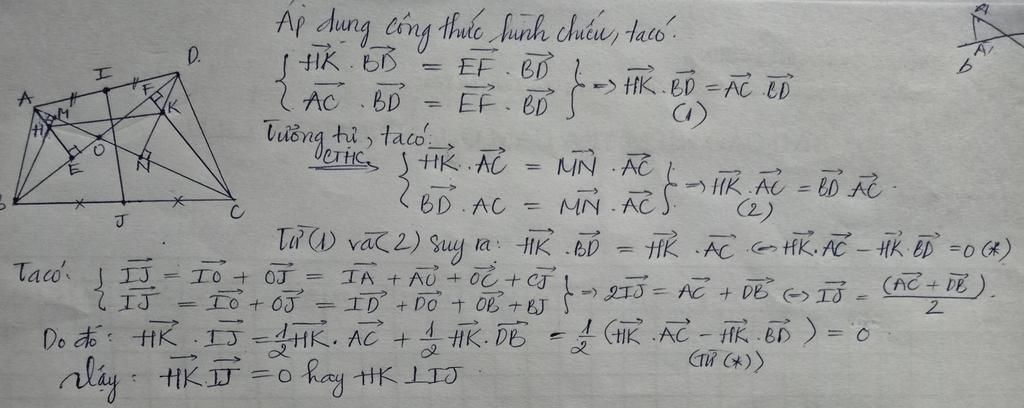 Áp dụng công thức hình chiếu, ta có:
{ HK→ . BD→ = EF→ . BD→
{ AC→ . BD→ = EF→ . BD→ } => HK→ . BD→ = AC→ BD→
(1)
Tương tự, ta có:
CTHC => { HK→ . AC→ = MN→ . AC→
{ BD→ . AC = MN→ . AC→ } => HK→ . AC→ = BD→ . AC→
(2)
Từ (1) và (2) suy ra: HK→ . BD→ = HK→ . AC→ <=> HK→ . AC→ - HK→ . BD→ = 0 (*)
Ta có: { IJ→ = IO→ + OJ→ = IA→ + AO→ + OC→ + CJ→
{ IJ→ = IO→ + OJ→ = ID→ + DO→ + OB→ + BJ→ } => 2IJ→ = AC→ + DB→ <=> IJ→ = (AC→ + DB→)/2.
Do đó: HK→ . IJ→ = 1/2 HK→ . AC→ + 1/2 HK→ . DB→ = 1/2 (HK→ . AC→ - HK→ . BD→) = 0
(Từ (*))
Vậy: HK→ . IJ→ = 0 hay HK ⊥ IJ
A I D
H M F K
O E N
B J C
A
A'
B